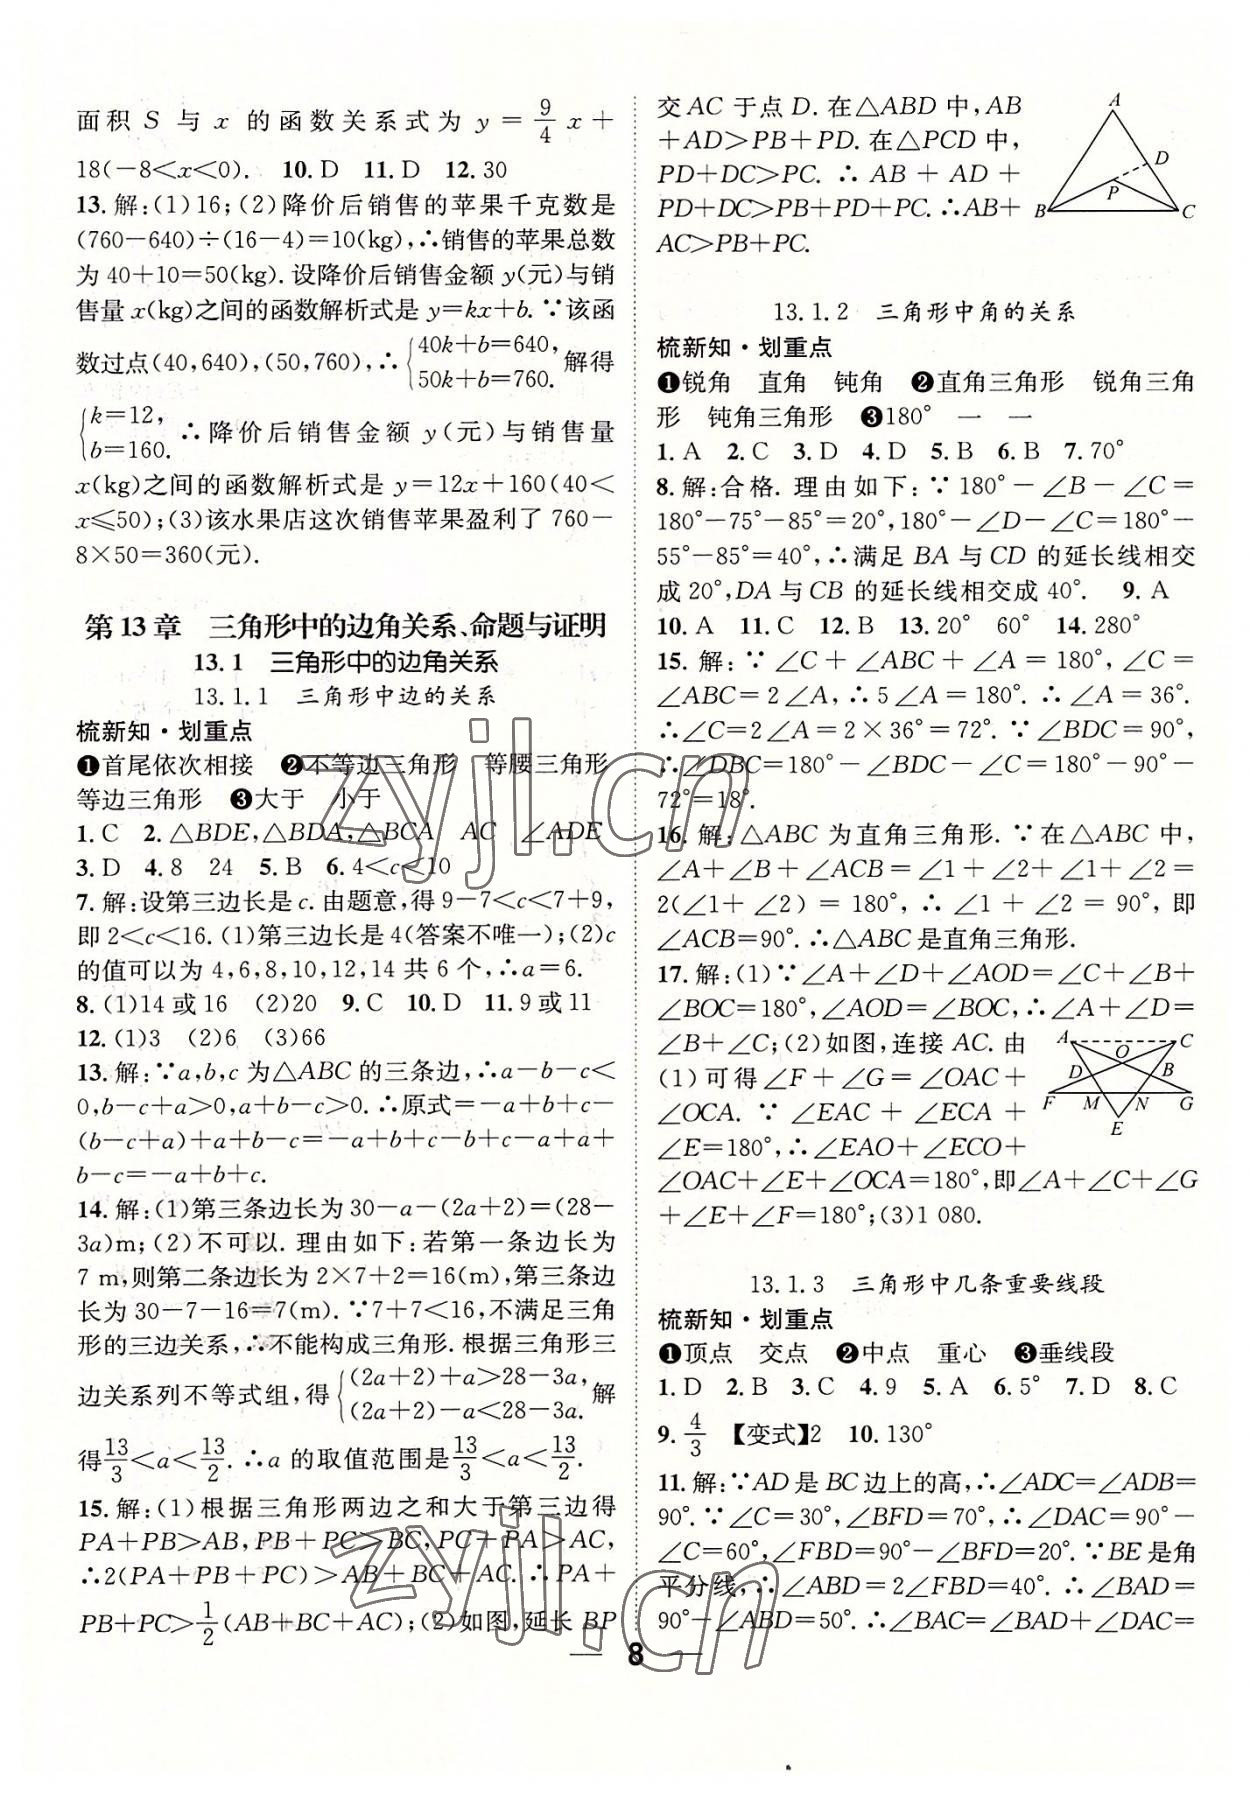 面积 S 与 x 的函数关系式为 y=9/4x+
18(-8<x<0). 10. D 11. D 12. 30
13. 解:(1)16;(2)降价后销售的苹果千克数是
(760-640)÷(16-4)=10(kg),∴销售的苹果总数
为 40+10=50(kg). 设降价后销售金额 y(元)与销
售量 x(kg)之间的函数解析式是 y=kx+b. ∵该函
数过点(40,640),(50,760),∴{40k+b=640, 50k+b=760. 解得
{k=12, b=160. ∴降价后销售金额 y(元)与销售量
x(kg)之间的函数解析式是 y=12x+160(40<
x≤50);(3)该水果店这次销售苹果盈利了 760-
8×50=360(元).
第 13 章 三角形中的边角关系、命题与证明
13.1 三角形中的边角关系
13.1.1 三角形中边的关系
梳新知·划重点
❶首尾依次相接 ❷不等边三角形 等腰三角形
等边三角形 ❸大于 小于
1. C 2. △BDE,△BDA,△BCA AC ∠ADE
3. D 4. 8 24 5. B 6. 4<c<10
7. 解:设第三边长是 c. 由题意,得 9-7<c<7+9,
即 2<c<16. (1)第三边长是 4(答案不唯一);(2)c
的值可以为 4,6,8,10,12,14 共 6 个,∴a=6.
8. (1)14 或 16 (2)20 9. C 10. D 11. 9 或 11
12. (1)3 (2)6 (3)66
13. 解:∵a,b,c 为△ABC 的三条边,∴a-b-c<
0,b-c+a>0,a+b-c>0. ∴原式=-a+b+c-
(b-c+a)+a+b-c=-a+b+c-b+c-a+a+
b-c=-a+b+c.
14. 解:(1)第三条边长为 30-a-(2a+2)=(28-
3a)m;(2)不可以. 理由如下:若第一条边长为
7 m,则第二条边长为 2×7+2=16(m),第三条边
长为 30-7-16=7(m). ∵7+7<16,不满足三角
形的三边关系,∴不能构成三角形. 根据三角形三
边关系列不等式组,得{(2a+2)+a>28-3a, (2a+2)-a<28-3a. 解
得13/3<a<13/2. ∴a 的取值范围是13/3<a<13/2.
15. 解:(1)根据三角形两边之和大于第三边得
PA+PB>AB,PB+PC>BC,PC+PA>AC,
∴2(PA+PB+PC)>AB+BC+AC. ∴PA+
PB+PC>1/2(AB+BC+AC);(2)如图,延长 BP
交 AC 于点 D. 在△ABD 中,AB
+AD>PB+PD. 在△PCD 中,
PD+DC>PC. ∴AB+AD+
PD+DC>PB+PD+PC. ∴AB+
AC>PB+PC.
A
D
P
B
C
13.1.2 三角形中角的关系
梳新知·划重点
❶锐角 直角 钝角 ❷直角三角形 锐角三角
形 钝角三角形 ❸180° 一 一
1. A 2. C 3. D 4. D 5. B 6. B 7. 70°
8. 解:合格. 理由如下:∵180°-∠B-∠C=
180°-75°-85°=20°,180°-∠D-∠C=180°-
55°-85°=40°,∴满足 BA 与 CD 的延长线相交
成 20°,DA 与 CB 的延长线相交成 40°. 9. A
10. A 11. C 12. B 13. 20° 60° 14. 280°
15. 解:∵∠C+∠ABC+∠A=180°,∠C=
∠ABC=2∠A,∴5∠A=180°. ∴∠A=36°.
∴∠C=2∠A=2×36°=72°. ∵∠BDC=90°,
∴∠DBC=180°-∠BDC-∠C=180°-90°-
72°=18°.
16. 解:△ABC 为直角三角形. ∵在△ABC 中,
∠A+∠B+∠ACB=∠1+∠2+∠1+∠2=
2(∠1+∠2)=180°,∴∠1+∠2=90°,即
∠ACB=90°. ∴△ABC 是直角三角形.
17. 解:(1)∵∠A+∠D+∠AOD=∠C+∠B+
∠BOC=180°,∠AOD=∠BOC,∴∠A+∠D=
∠B+∠C;(2)如图,连接 AC. 由
(1)可得∠F+∠G=∠OAC+
∠OCA. ∵∠EAC+∠ECA+
∠E=180°,∴∠EAO+∠ECO+
∠OAC+∠E+∠OCA=180°,即∠A+∠C+∠G
+∠E+∠F=180°;(3)1 080.
A
C
O
D
B
F
M
N
G
E
13.1.3 三角形中几条重要线段
梳新知·划重点
❶顶点 交点 ❷中点 重心 ❸垂线段
1. D 2. B 3. C 4. 9 5. A 6. 5° 7. D 8. C
9. 4/3 【变式】2 10. 130°
11. 解:∵AD 是 BC 边上的高,∴∠ADC=∠ADB=
90°. ∵∠C=30°,∠BFD=70°,∴∠DAC=90°-
∠C=60°,∠FBD=90°-∠BFD=20°. ∵BE 是角
平分线,∴∠ABD=2∠FBD=40°. ∴∠BAD=
90°-∠ABD=50°. ∴∠BAC=∠BAD+∠DAC=
— 8 —
zyjl.cn
zyjl.cn